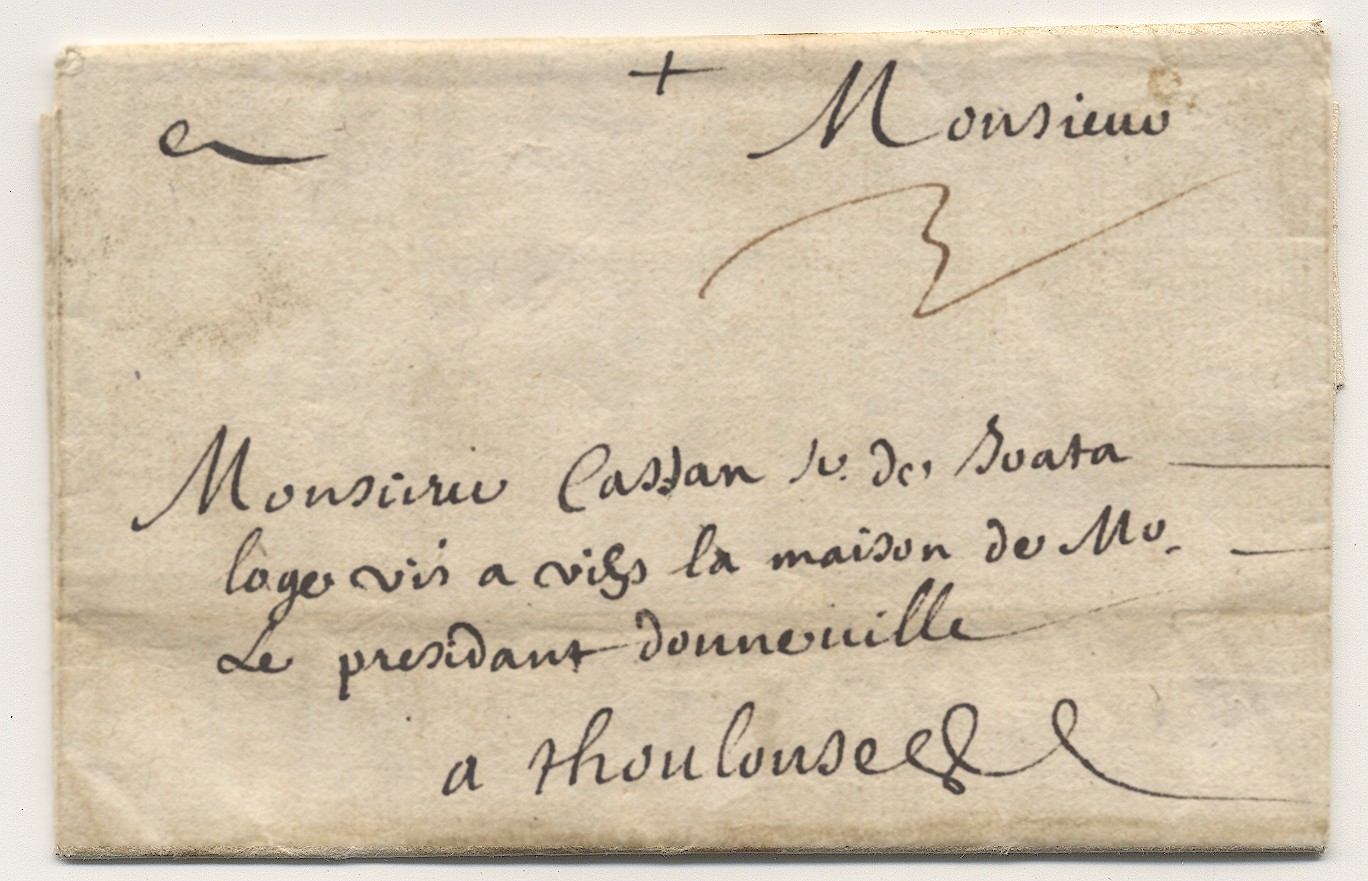 + Monsieur
3
Monsieur Cassan Sr. de
loge vis a vihs la maison de Mr.
Le presidant donneuille
a thoulouse